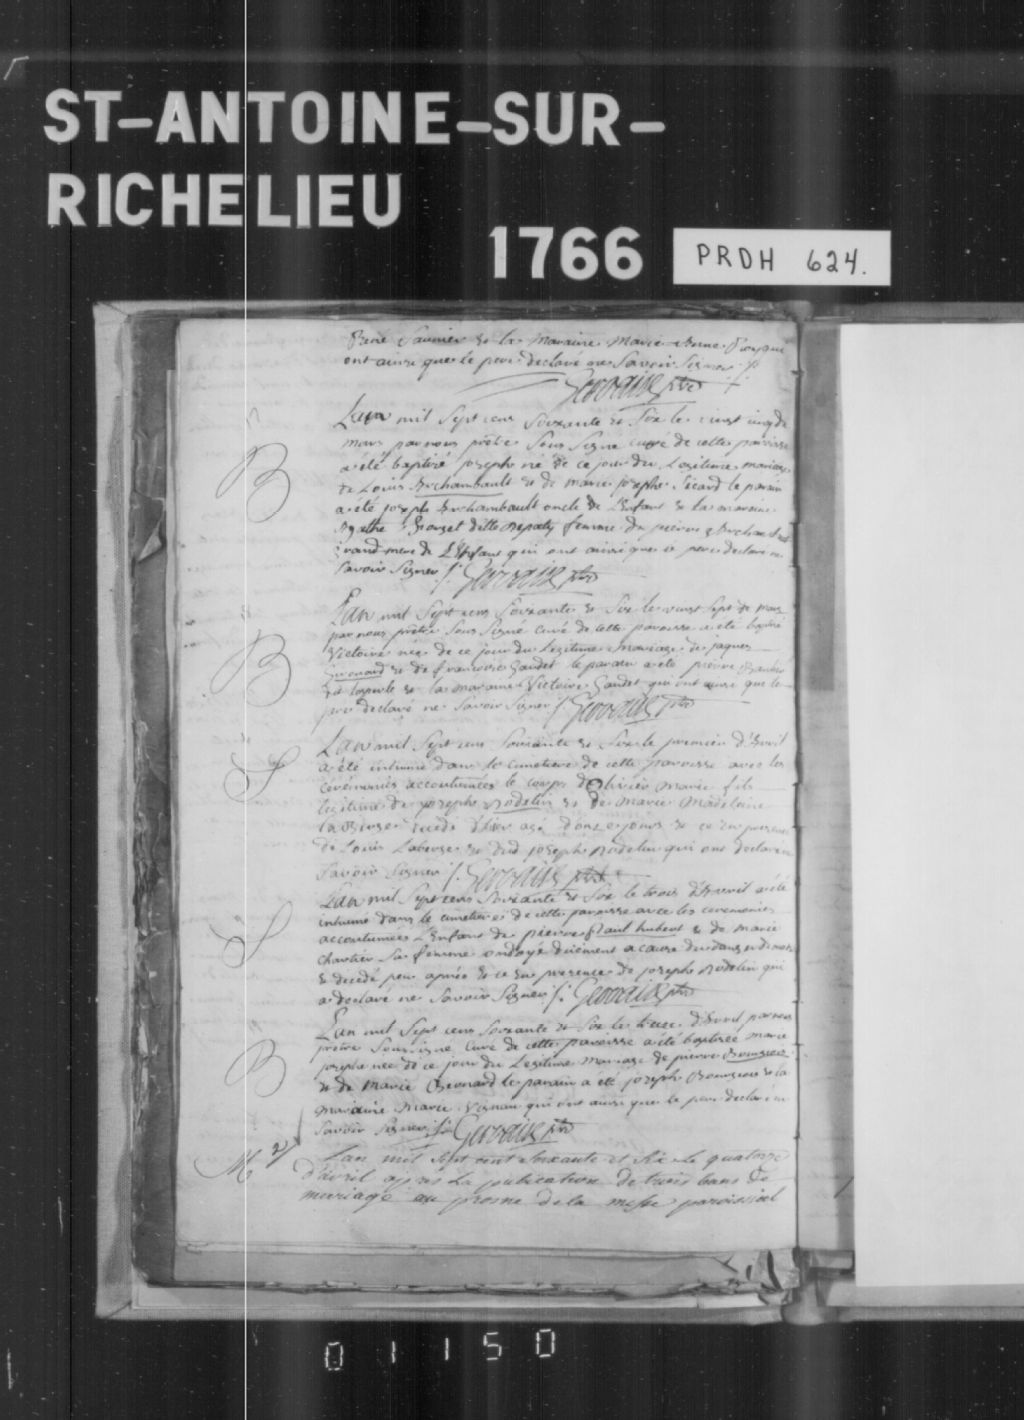 ST-ANTOINE-SUR-
RICHELIEU
1766
PRDH 624.
René Saunier & la Maraine Marie
ont ainsi que le pere declaré ne Savoir Signer ./.
Gervaise ptre
B
L'an mil Sept cens Soixante & Six le vingt cinq de
mars par nous prêtre Sous Signé curé de cette paroisse
a été baptisé joseph né de ce jour du Legitime mariage
de Louis Archambault & de marie josephe Picard le parain
a été joseph Archambault oncle de L'Enfant & la maraine
Agathe ditte femme de pierre Archambault
grand mere de L'Enfant qui ont ainsi que le pere declaré ne
Savoir Signer ./. Gervaise ptre
B
L'an mil Sept cens Soixante & Six le vingt Sept de mars
par nous prêtre Sous Signé curé de cette paroisse a été baptisé
Victoire née de ce jour du Legitime Mariage de jaques
& de francoise Gaudet le parain a été pierre
& la Maraine Victoire Gaudet qui ont ainsi que le
pere declaré ne Savoir Signer ./. Gervaise ptre
S
L'an mil Sept cens Soixante & Six le premier d'Avril
a été inhumé dans le cimetiere de cette paroisse avec les
cérémonies accoutumées le corps d'Olivier Marie fils
legitime de josephe Nodelin & de Marie Madelaine
la Berge decedé d'hier agé d'onze jours & ce en presence
de Louis Laberge & dud joseph Nodelin qui ont declaré ne
Savoir Signer ./. Gervaise ptre
S
L'an mil Sept cens Soixante & Six le trois d'Avril a été
inhumé dans le cimetiere de cette paroisse avec les ceremonies
accoutumées L'Enfant de pierre hubert & de marie
Chartier Sa femme ondoyé a cause du danger de mort
& decedé peu après & ce en presence de joseph Nodelin qui
a declaré ne Savoir Signer ./. Gervaise ptre
B
L'an mil Sept cens Soixante & Six le d'Avril par nous
prêtre Soussigné Curé de cette paroisse a été baptisée Marie
josephe née de ce jour du Legitime Mariage de pierre Bourgeois
& de Marie le parain a été joseph Bourgeois & la
Maraine Marie qui ont ainsi que le pere declaré ne
Savoir Signer ./. Gervaise ptre
M 2
Lan mil sept cent soixante et six Le quatorze
d'avril apres La publication de trois bans de
mariage au prosne de la messe paroissial
01150